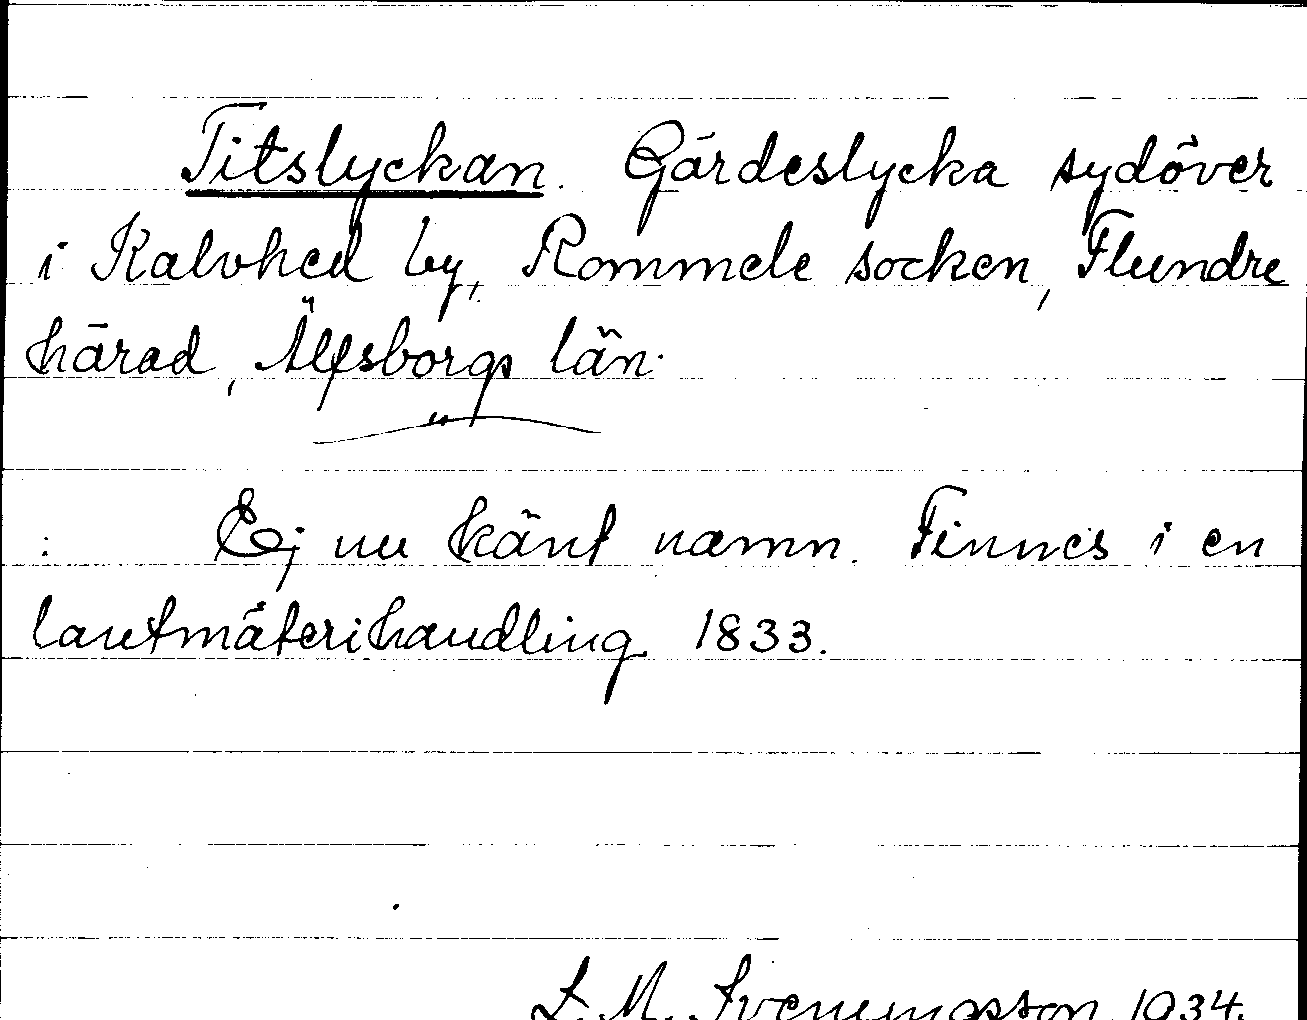 Titslyckan. Gärdeslycka sydöver
i Kalvhed by, Rommele socken, Flundre
härad, Älfsborgs län.
"
Ej nu känt namn. Finnes i en
lantmäterihandling 1833.
L. M. Svenungsson 1934.